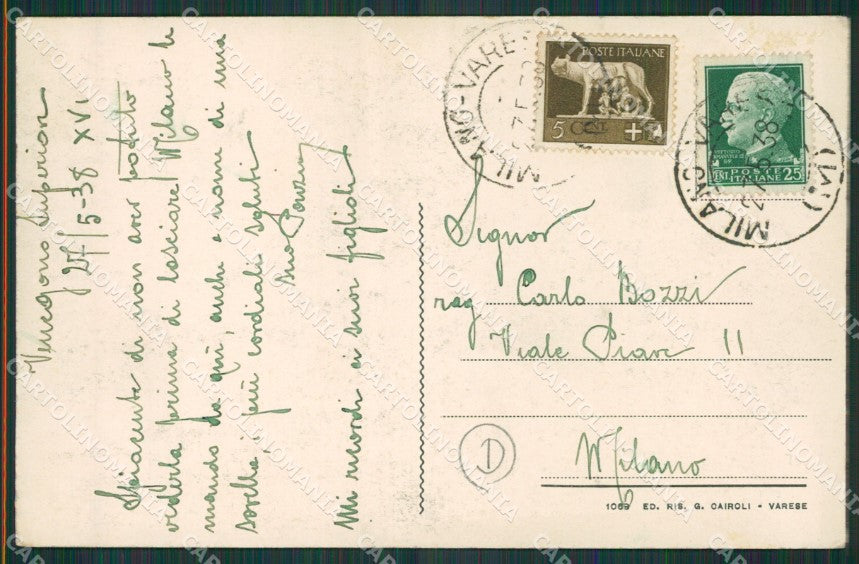 Venegono Superiore
27/5-38 XVI
Spiacente di non aver potuto
vederla prima di lasciare Milano le
mando da qui, anche a nome di mia
sorella, i più cordiali saluti
suo
Mi ricordi ai suoi figlioli
POSTE ITALIANE
5 CENT +
VITTORIO EMANUELE
CENT POSTE ITALIANE 25
MILANO-VARESE
MILANO-VARESE
Signor
rag Carlo Bozzi
Viale Piave 11
Milano
D
1069 ED. RIS. G. CAIROLI - VARESE
CARTOLINOMANIA